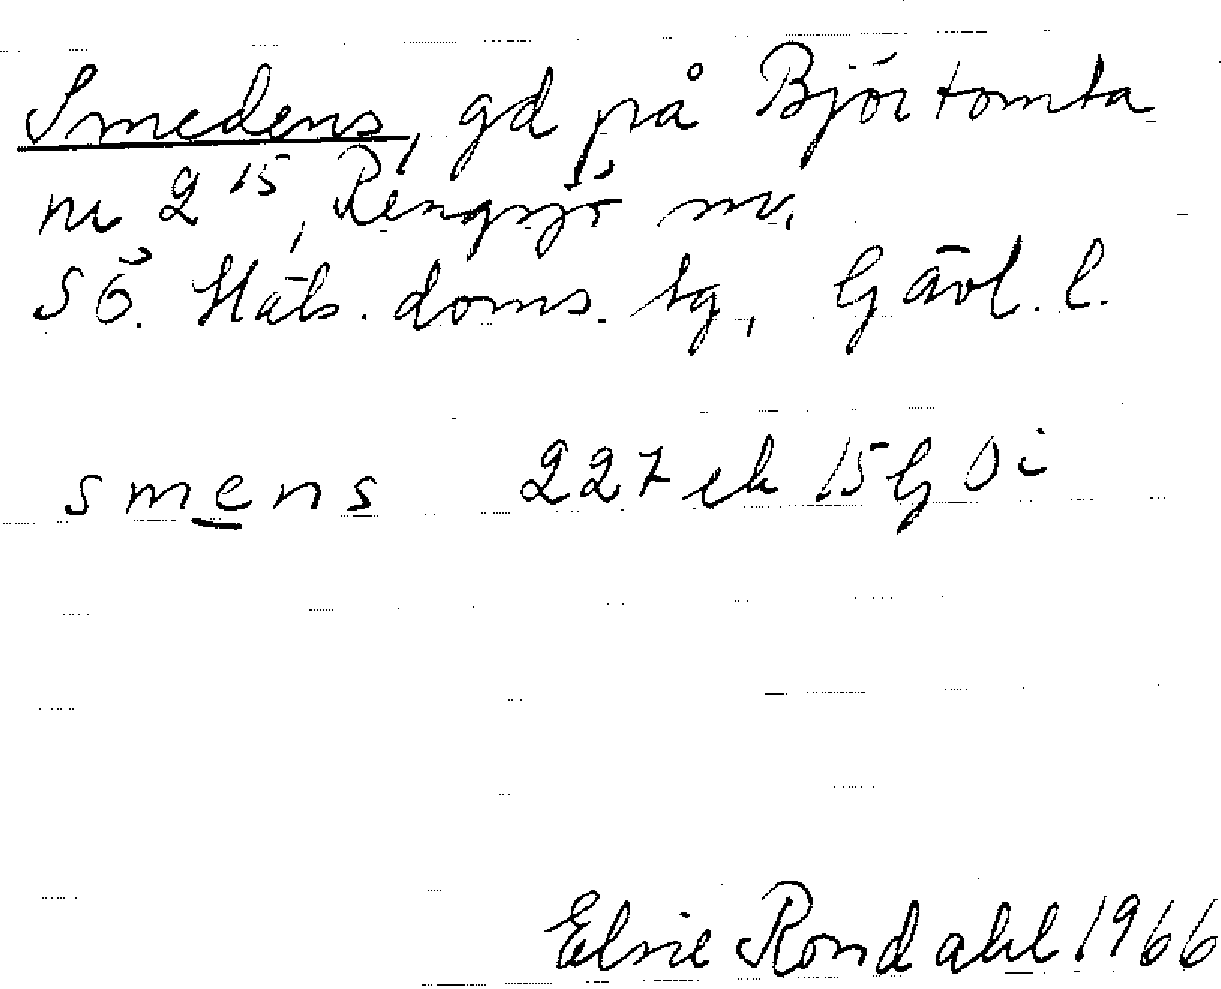 Smedens, gd på Björtomta
nr 2 15, Rengsjö sn,
SÖ. Häls. doms. tg, Gävl. l.
smens 227 ek 15 G Öi
Elsie Rondahl 1966